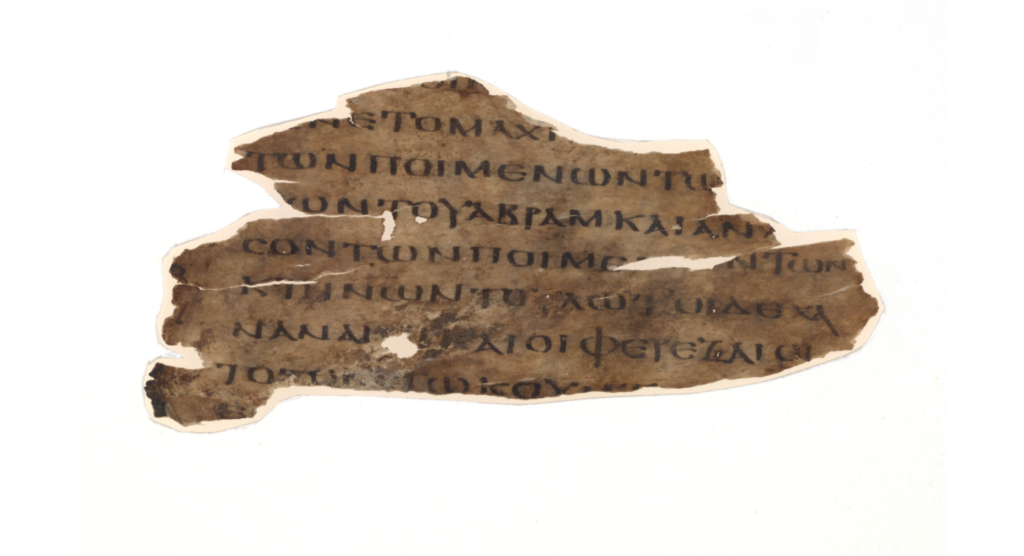 ΝΕΤΟΜΑΧΗ
ΤΩΝΠΟΙΜΕΝΩΝΤΩ
ΝΩΝΤΟΥΑΒΡΑΜΚΑΙΑΝΑ
ϹΟΝΤΩΝΠΟΙΜΕ ΝΤΩΝ
ΚΤΗΝΩΝΤΟΥΛΩΤΟΙΔΕΧΑ
ΝΑΝΑΙ ΑΙΟΙΦΕΡΕΖΑΙΟΙ
ΤΟΤΕ ΤΩΚΟΥΝ